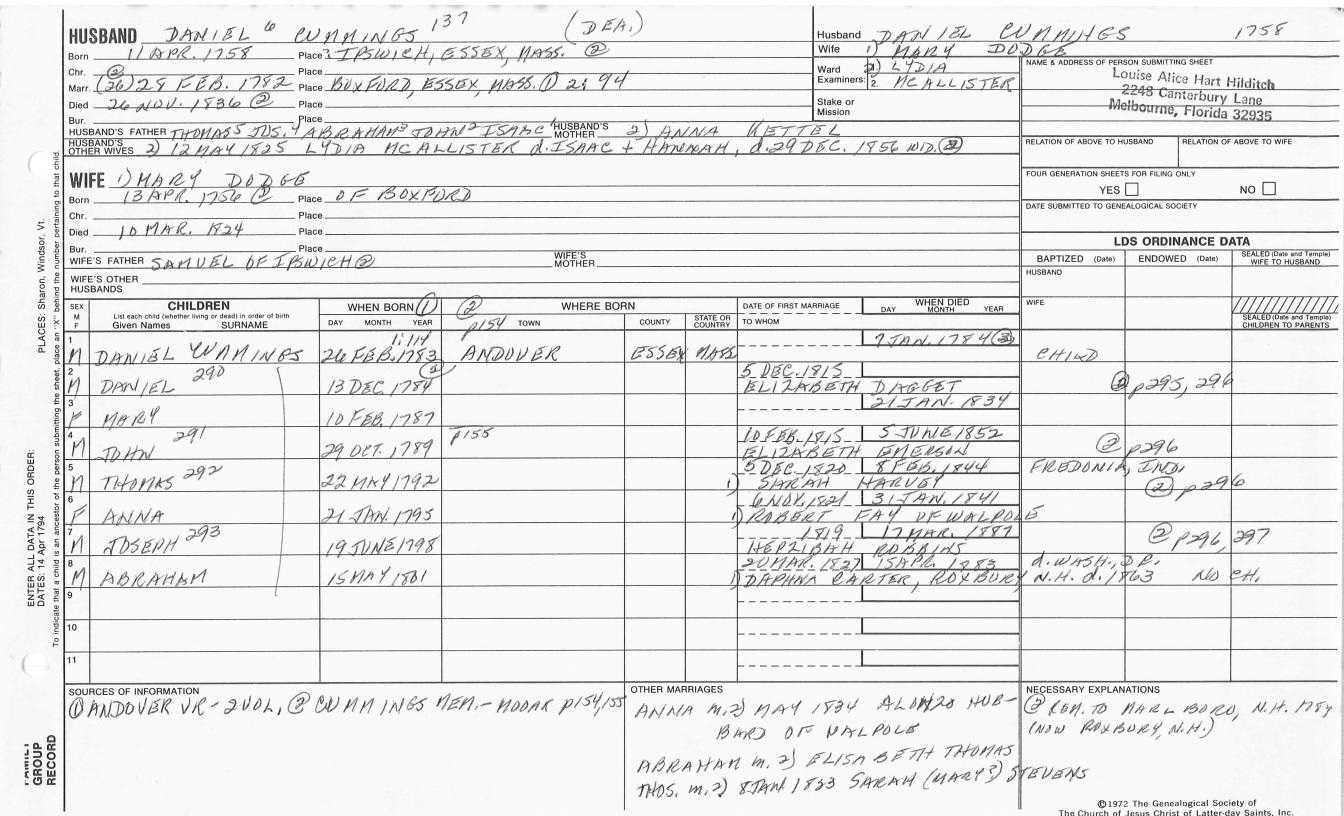 HUSBAND DANIEL 6 CUMMINGS 137 (DEA.)
Born 11 APR. 1758 Place ? IPSWICH, ESSEX, MASS. ②
Chr. ② Place
Marr. (26) 28 FEB. 1782 Place BOXFORD, ESSEX, MASS. ① 2:94
Died 26 NOV. 1836 ② Place
Bur. Place
HUSBAND'S FATHER THOMAS5 JOS.4 ABRAHAM3 JOHN2 ISAAC1 HUSBAND'S MOTHER 2) ANNA KETTEL
HUSBAND'S OTHER WIVES 2) 12 MAY 1825 LYDIA MCALLISTER d. ISAAC + HANNAH, d. 29 DEC. 1856 WID. ②
Husband DANIEL CUMMINGS 1758
Wife 1) MARY DODGE
Ward 2) LYDIA
Examiners: 2. MCALLISTER
Stake or Mission
NAME & ADDRESS OF PERSON SUBMITTING SHEET
Louise Alice Hart Hilditch
2248 Canterbury Lane
Melbourne, Florida 32935
RELATION OF ABOVE TO HUSBAND RELATION OF ABOVE TO WIFE
FOUR GENERATION SHEETS FOR FILING ONLY
YES NO
DATE SUBMITTED TO GENEALOGICAL SOCIETY
WIFE 1) MARY DODGE
Born 13 APR. 1756 ② Place OF BOXFORD
Chr. Place
Died 10 MAR. 1824 Place
Bur. Place
WIFE'S FATHER SAMUEL OF IPSWICH ② WIFE'S MOTHER
WIFE'S OTHER HUSBANDS
LDS ORDINANCE DATA
BAPTIZED (Date) ENDOWED (Date) SEALED (Date and Temple) WIFE TO HUSBAND
HUSBAND
WIFE
SEALED (Date and Temple) CHILDREN TO PARENTS
SEX M F
CHILDREN
List each child (whether living or dead) in order of birth
Given Names SURNAME
WHEN BORN ①
DAY MONTH YEAR
② p154
WHERE BORN
TOWN COUNTY STATE OR COUNTRY
DATE OF FIRST MARRIAGE
TO WHOM
WHEN DIED
DAY MONTH YEAR
1 M DANIEL CUMMINGS 1:114 26 FEB. 1783 ANDOVER ESSEX MASS 7 JAN. 1784 ② CHILD
2 M DANIEL 290 13 DEC. 1784 ② 5 DEC. 1815 ELIZABETH DAGGET ② p295, 296
3 F MARY 10 FEB. 1787 21 JAN. 1834
4 M JOHN 291 29 OCT. 1789 p155 10 FEB. 1815 5 JUNE 1852 ELIZABETH EMERSON ② p296
5 M THOMAS 292 22 MAY 1792 5 DEC. 1820 8 FEB. 1844 1) SARAH HARVEY FREDONIA, IND. ② p296
6 F ANNA 21 JAN. 1795 6 NOV. 1821 31 JAN. 1841 1) ROBERT FAY OF WALPOLE
7 M JOSEPH 293 19 JUNE 1798 1819 17 MAR. 1887 HEPZIBAH ROBBINS ② p296, 297
8 M ABRAHAM 15 MAY 1801 20 MAR. 1827 15 APR. 1883 1) DAPHNA CARTER, ROXBURY N.H. d. 1863 NO CH. d. WASH., D.C.
9
10
11
SOURCES OF INFORMATION
① ANDOVER VR - 2 VOL, ② CUMMINGS MEM. - MOOAR p154, 155
OTHER MARRIAGES
ANNA m. 2) MAY 1834 ALONZO HUB-
BARD OF WALPOLE
ABRAHAM m. 2) ELISABETH THOMAS
THOS. m. 2) 8 JAN 1833 SARAH (MARY?) STEVENS
NECESSARY EXPLANATIONS
② REM. TO MARLBORO, N.H. 1784
(NOW ROXBURY, N.H.)
©1972 The Genealogical Society of
The Church of Jesus Christ of Latter-day Saints, Inc.
PLACES: Sharon, Windsor, Vt.
ENTER ALL DATA IN THIS ORDER:
DATES: 14 Apr 1794
To indicate that a child is an ancestor of the person submitting the sheet, place an "X" behind the number pertaining to that child.
FAMILY
GROUP
RECORD